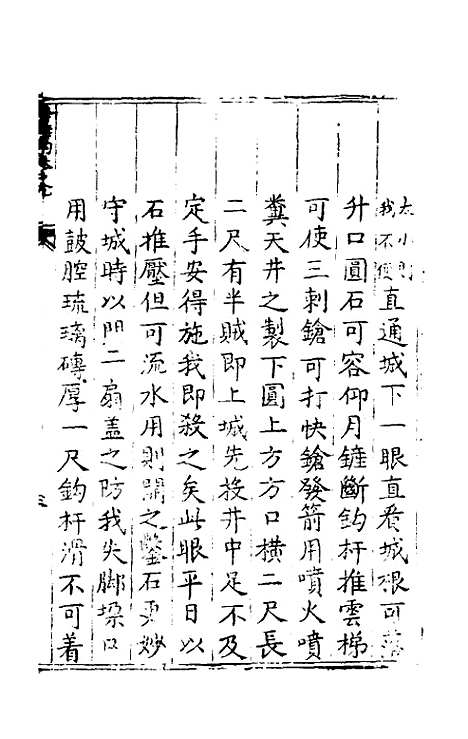 太小則
我不便直通城下一眼直看城根可落
升口圓石可容仰月鏟斷鈎杆推雲梯
可使三刺鎗可打快鎗發箭用噴火噴
糞天井之製下圓上方方口横二尺長
二尺有半賊即上城先投井中足不及
定手安得施我即殺之矣此眼平日以
石推壓但可流水用則開之鑿石更妙
守城時以門二扇盖之防我失脚垜口
用皷腔琉璃磚厚一尺鈎杆滑不可着